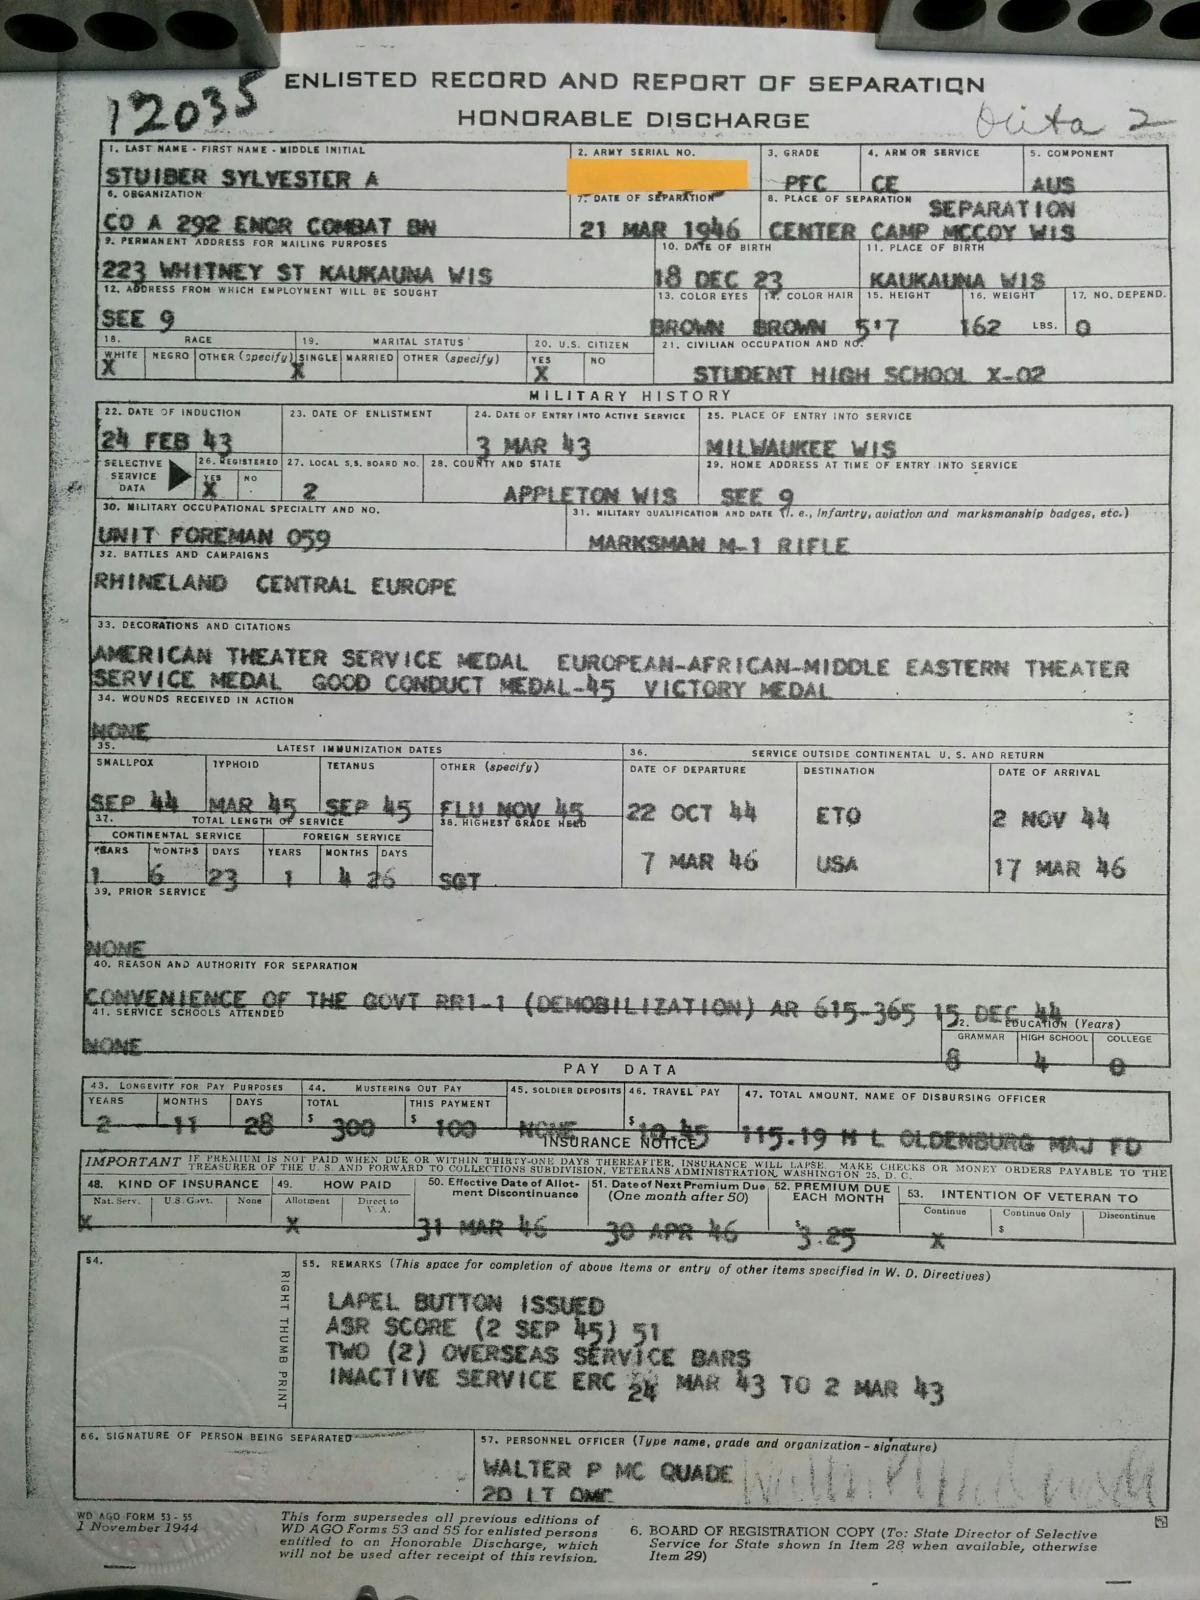 ENLISTED RECORD AND REPORT OF SEPARATION
12035
HONORABLE DISCHARGE
2
1. LAST NAME - FIRST NAME - MIDDLE INITIAL
STUIBER SYLVESTER A
2. ARMY SERIAL NO.
3. GRADE
PFC
4. ARM OR SERVICE
CE
5. COMPONENT
AUS
6. ORGANIZATION
CO A 292 ENGR COMBAT BN
7. DATE OF SEPARATION
21 MAR 1946
8. PLACE OF SEPARATION
SEPARATION
CENTER CAMP MCCOY WIS
9. PERMANENT ADDRESS FOR MAILING PURPOSES
223 WHITNEY ST KAUKAUNA WIS
10. DATE OF BIRTH
18 DEC 23
11. PLACE OF BIRTH
KAUKAUNA WIS
12. ADDRESS FROM WHICH EMPLOYMENT WILL BE SOUGHT
SEE 9
13. COLOR EYES
BROWN
14. COLOR HAIR
BROWN
15. HEIGHT
5'7
16. WEIGHT
162 LBS.
17. NO. DEPEND.
0
18. RACE
WHITE NEGRO OTHER (specify)
X
19. MARITAL STATUS
SINGLE MARRIED OTHER (specify)
X
20. U.S. CITIZEN
YES NO
X
21. CIVILIAN OCCUPATION AND NO.
STUDENT HIGH SCHOOL X-02
MILITARY HISTORY
22. DATE OF INDUCTION
24 FEB 43
23. DATE OF ENLISTMENT
24. DATE OF ENTRY INTO ACTIVE SERVICE
3 MAR 43
25. PLACE OF ENTRY INTO SERVICE
MILWAUKEE WIS
SELECTIVE
SERVICE
DATA
26. REGISTERED
YES NO
X
27. LOCAL S.S. BOARD NO.
2
28. COUNTY AND STATE
APPLETON WIS
29. HOME ADDRESS AT TIME OF ENTRY INTO SERVICE
SEE 9
30. MILITARY OCCUPATIONAL SPECIALTY AND NO.
UNIT FOREMAN 059
31. MILITARY QUALIFICATION AND DATE (i. e., infantry, aviation and marksmanship badges, etc.)
MARKSMAN M-1 RIFLE
32. BATTLES AND CAMPAIGNS
RHINELAND CENTRAL EUROPE
33. DECORATIONS AND CITATIONS
AMERICAN THEATER SERVICE MEDAL EUROPEAN-AFRICAN-MIDDLE EASTERN THEATER
SERVICE MEDAL GOOD CONDUCT MEDAL-45 VICTORY MEDAL
34. WOUNDS RECEIVED IN ACTION
NONE
35. LATEST IMMUNIZATION DATES
SMALLPOX TYPHOID TETANUS OTHER (specify)
SEP 44 MAR 45 SEP 45 FLU NOV 45
36. SERVICE OUTSIDE CONTINENTAL U. S. AND RETURN
DATE OF DEPARTURE DESTINATION DATE OF ARRIVAL
22 OCT 44 ETO 2 NOV 44
7 MAR 46 USA 17 MAR 46
37. TOTAL LENGTH OF SERVICE
CONTINENTAL SERVICE FOREIGN SERVICE
YEARS MONTHS DAYS YEARS MONTHS DAYS
1 6 23 1 4 26
38. HIGHEST GRADE HELD
SGT
39. PRIOR SERVICE
NONE
40. REASON AND AUTHORITY FOR SEPARATION
CONVENIENCE OF THE GOVT RR1-1 (DEMOBILIZATION) AR 615-365 15 DEC 44
41. SERVICE SCHOOLS ATTENDED
NONE
42. EDUCATION (Years)
GRAMMAR HIGH SCHOOL COLLEGE
8 4 0
PAY DATA
43. LONGEVITY FOR PAY PURPOSES
YEARS MONTHS DAYS
2 11 28
44. MUSTERING OUT PAY
TOTAL THIS PAYMENT
$ 300 $ 100
45. SOLDIER DEPOSITS
NONE
46. TRAVEL PAY
$ 10.45
47. TOTAL AMOUNT, NAME OF DISBURSING OFFICER
115.19 H L OLDENBURG MAJ FD
INSURANCE NOTICE
IMPORTANT IF PREMIUM IS NOT PAID WHEN DUE OR WITHIN THIRTY-ONE DAYS THEREAFTER, INSURANCE WILL LAPSE. MAKE CHECKS OR MONEY ORDERS PAYABLE TO THE
TREASURER OF THE U. S. AND FORWARD TO COLLECTIONS SUBDIVISION, VETERANS ADMINISTRATION, WASHINGTON 25, D. C.
48. KIND OF INSURANCE
Nat. Serv. U.S. Govt. None
X
49. HOW PAID
Allotment Direct to V. A.
X
50. Effective Date of Allotment Discontinuance
31 MAR 46
51. Date of Next Premium Due
(One month after 50)
30 APR 46
52. PREMIUM DUE
EACH MONTH
$3.25
53. INTENTION OF VETERAN TO
Continue Continue Only Discontinue
X $
54.
RIGHT THUMB PRINT
55. REMARKS (This space for completion of above items or entry of other items specified in W. D. Directives)
LAPEL BUTTON ISSUED
ASR SCORE (2 SEP 45) 51
TWO (2) OVERSEAS SERVICE BARS
INACTIVE SERVICE ERC 24 MAR 43 TO 2 MAR 43
56. SIGNATURE OF PERSON BEING SEPARATED
57. PERSONNEL OFFICER (Type name, grade and organization - signature)
WALTER P MC QUADE
2D LT QMC
WD AGO FORM 53 - 55
1 November 1944
This form supersedes all previous editions of
WD AGO Forms 53 and 55 for enlisted persons
entitled to an Honorable Discharge, which
will not be used after receipt of this revision.
6. BOARD OF REGISTRATION COPY (To: State Director of Selective
Service for State shown in Item 28 when available, otherwise
Item 29)